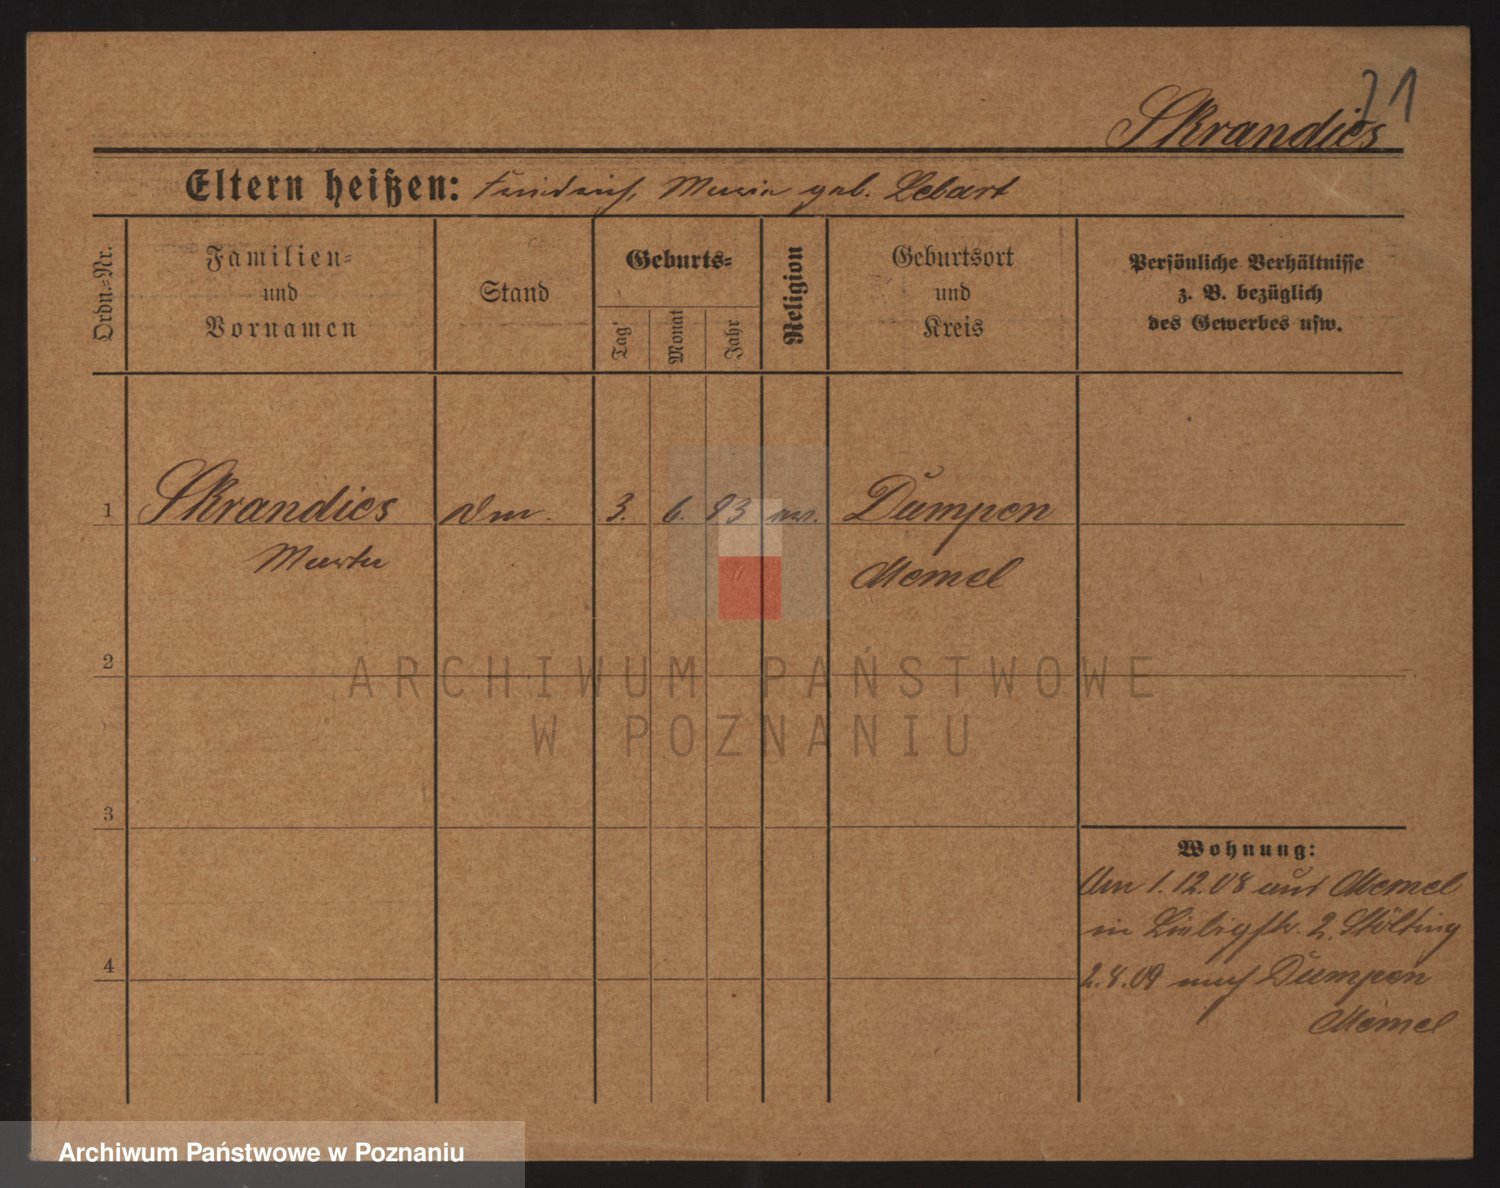 21
Skrandies
Eltern heißen: Friedrich, Maria geb. Lebart
Ordn.-Nr.
Familien-
und
Vornamen
Stand
Geburts-
Tag
Monat
Jahr
Religion
Geburtsort
und
Kreis
Persönliche Verhältnisse
z. B. bezüglich
des Gewerbes usw.
1 Skrandies 3. 6. 83 Dumpen
Martha Memel
2
3
4
ARCHIWUM PAŃSTWOWE
W POZNANIU
Wohnung:
Am 1.12.08 aus Memel
in Liebigstr. 2. Stölting
2.8.09 nach Dumpen
Memel
Archiwum Państwowe w Poznaniu